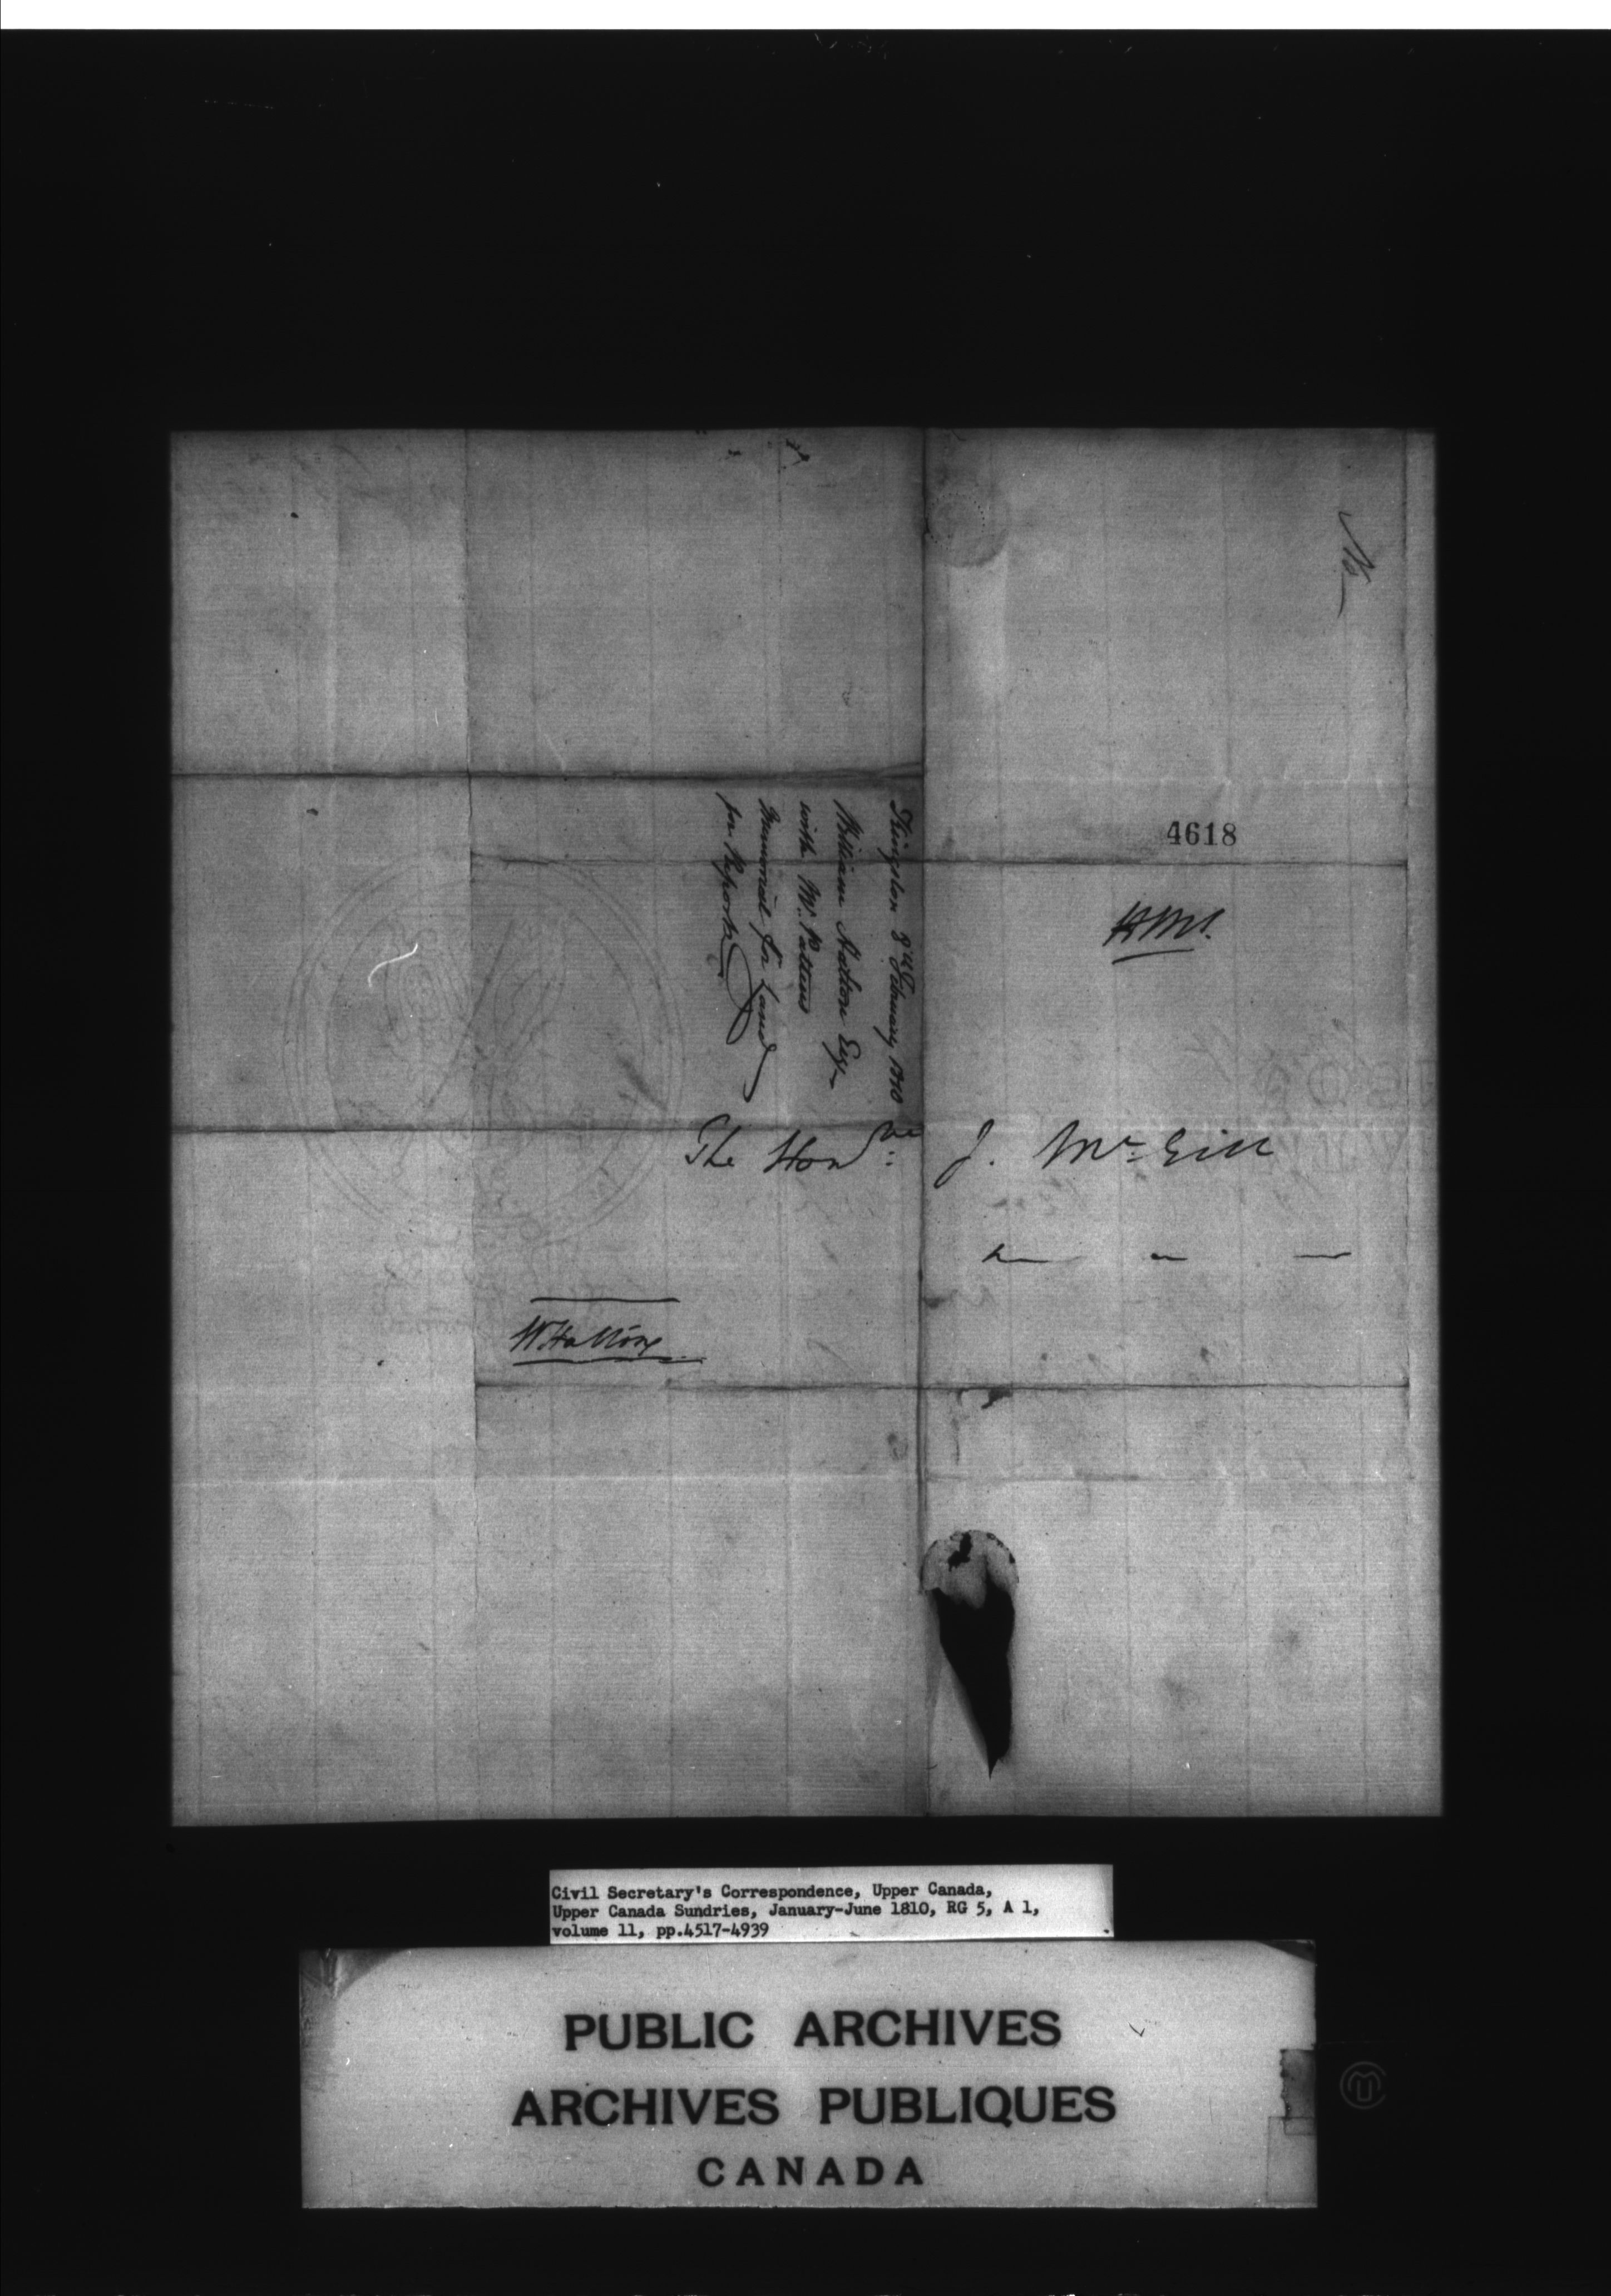 4618
HMS.
Kingston 3rd February 1810
William Halton Esqr
with Mr. Pattens
Memorial for Land
for Report
The Honble: J. McGill
W. Halton
Civil Secretary's Correspondence, Upper Canada,
Upper Canada Sundries, January-June 1810, RG 5, A 1,
volume 11, pp.4517-4939
PUBLIC ARCHIVES
ARCHIVES PUBLIQUES
CANADA